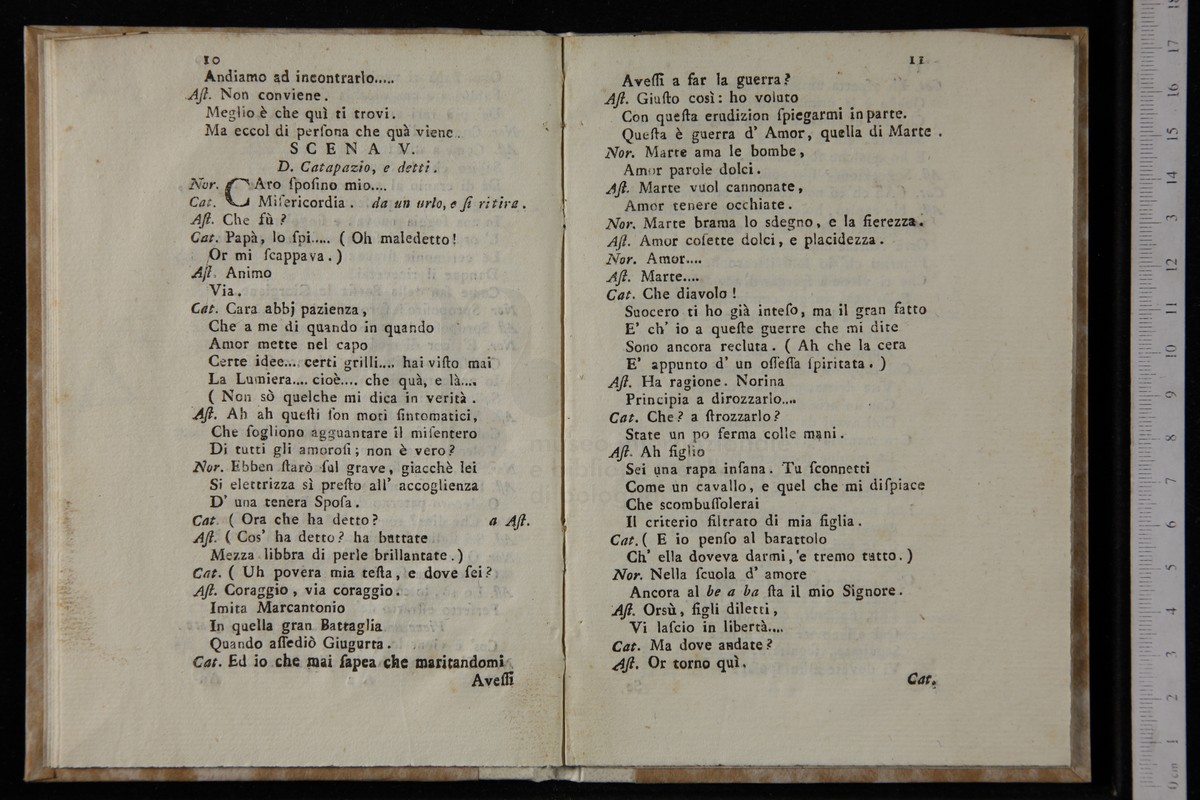 10
Andiamo ad incontrarlo.....
Aſt. Non conviene.
Meglio è che quì ti trovi.
Ma eccol di perſona che quà viene.
SCENA V.
D. Catapazio, e detti.
Nor. CAro ſpoſino mio....
Cat. Miſericordia. da un urlo, e ſi ritira.
Aſt. Che fù?
Cat. Papà, lo ſpi..... ( Oh maledetto!
Or mi ſcappava.)
Aſt. Animo
Via.
Cat. Cara abbj pazienza,
Che a me di quando in quando
Amor mette nel capo
Certe idee.... certi grilli.... hai viſto mai
La Lumiera.... cioè.... che quà, e là....
( Non sò quelche mi dica in verità.
Aſt. Ah ah queſti ſon moti ſintomatici,
Che ſogliono agguantare il miſentero
Di tutti gli amoroſi; non è vero?
Nor. Ebben ſtarò ſul grave, giacchè lei
Si elettrizza sì preſto all' accoglienza
D' una tenera Spoſa.
Cat. ( Ora che ha detto? a Aſt.
Aſt. ( Cos' ha detto? ha buttate
Mezza libbra di perle brillantate.)
Cat. ( Uh povera mia teſta, e dove ſei?
Aſt. Coraggio, via coraggio.
Imita Marcantonio
In quella gran Battaglia
Quando aſſediò Giugurta.
Cat. Ed io che mai ſapea che maritandomi
Aveſſi
11
Aveſſi a far la guerra?
Aſt. Giuſto così: ho voluto
Con queſta erudizion ſpiegarmi in parte.
Queſta è guerra d' Amor, quella di Marte.
Nor. Marte ama le bombe,
Amor parole dolci.
Aſt. Marte vuol cannonate,
Amor tenere occhiate.
Nor. Marte brama lo sdegno, e la fierezza.
Aſt. Amor coſette dolci, e placidezza.
Nor. Amor....
Aſt. Marte....
Cat. Che diavolo!
Suocero ti ho già inteſo, ma il gran fatto
E' ch' io a queſte guerre che mi dite
Sono ancora recluta. ( Ah che la cera
E' appunto d' un oſſeſſa ſpiritata. )
Aſt. Ha ragione. Norina
Principia a dirozzarlo....
Cat. Che? a ſtrozzarlo?
State un po ferma colle mani.
Aſt. Ah figlio
Sei una rapa inſana. Tu ſconnetti
Come un cavallo, e quel che mi diſpiace
Che ſcombuſſolerai
Il criterio filtrato di mia figlia.
Cat. ( E io penſo al barattolo
Ch' ella doveva darmi, e tremo tutto.)
Nor. Nella ſcuola d' amore
Ancora al be a ba ſta il mio Signore.
Aſt. Orsù, figli diletti,
Vi laſcio in libertà....
Cat. Ma dove andate?
Aſt. Or torno quì.
Cat.